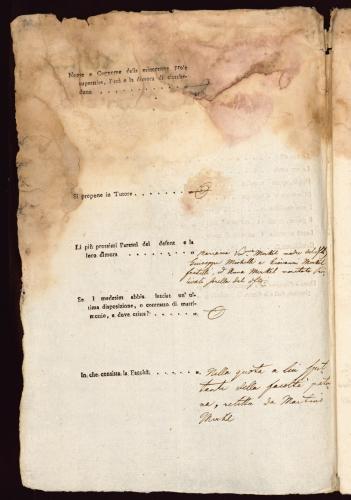 Nome e Cognome della minorenne prole
superstite, l'età e la dimora di ciasche-
duna . . . . . . . . . .
Si propone in Tutore . . . . . . .
Li più prossimi Parenti del defonto e la
loro dimora . . . . .
Giuseppe Michele e Giovanni
fratelli, ed Anna
Se i medesimi abbia lasciat un' ul-
tima disposizione, o contratto di matri-
monio, e dove esista? . . . . .
In che consista la Facoltà . . . . . .
Nella quota a lui spet-
tante della facoltà pater-
na, relitta da Martino